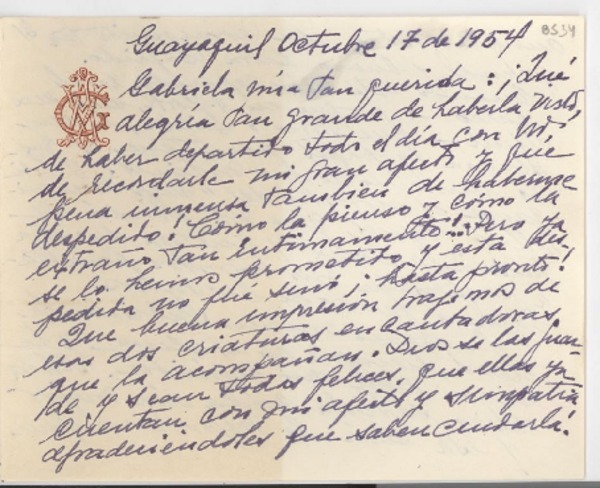 8534
Guayaquil Octubre 17 de 1954
Gabriela mía tan querida: ¡Qué
alegría tan grande de haberla visto,
de haber departido todo el día con Ud
de recordarle mi gran afecto y qué
pena inmensa tambien de haberme
despedido! Cómo la pienso y cómo la
extraño tan intimamente!... Pero ya
se lo hemos prometido y esta des-
pedida no fué sino ¡hasta pronto!
Que buena impresión trajimos de
esas dos criaturas encantadoras,
que la acompañan. Dios se las guar-
de y sean todos felices, que ellas ya
cuentan con mi afecto y simpatía
agradeciéndoles que saben cuidarla.